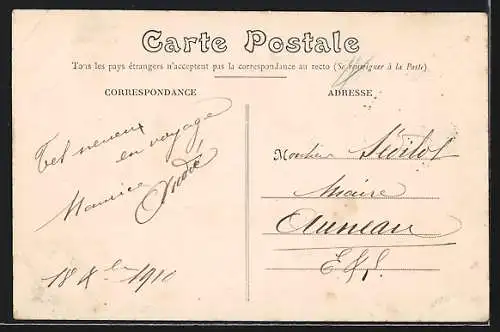 Carte Postale
Tous les pays étrangers n'acceptent pas la correspondance au recto (Se renseigner à la Poste).
CORRESPONDANCE
ADRESSE
en voyage
Maurice André
18 Xbre 1910
Monsieur
Maire
Auneau
E & L.